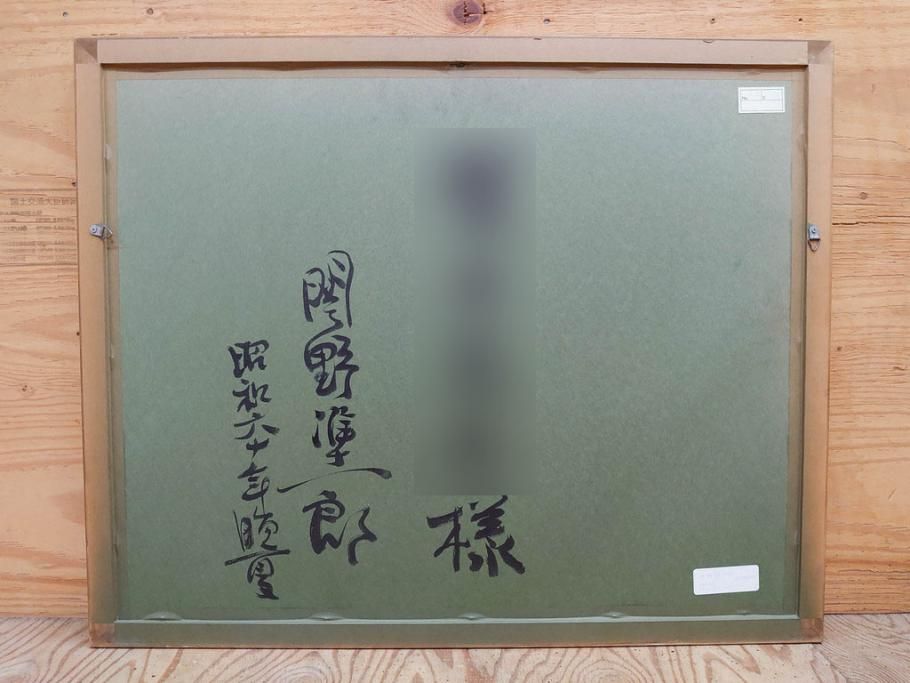 様
関野凖一郎
昭和六十年晩夏
No.